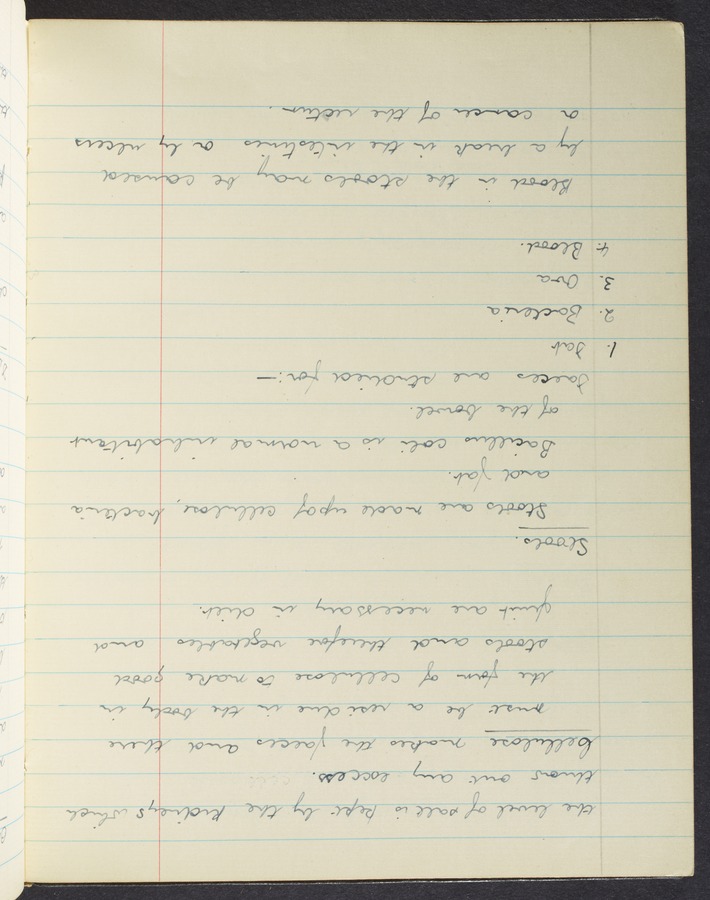 the level of salt is kept by the kidneys which
throws out any excess.
Cellulose makes the faeces and there
must be a residue in the body in
the form of cellulose to make good
stools and therefore vegetables and
fruit are necessary in diet.
Stools.
Stools are made up of cellulose, bacteria
and fat.
Bacillus coli is a normal inhabitant
of the bowel.
Faeces are studied for:—
1. Fat
2. Bacteria
3. Ova
4. Blood.
Blood in the stools may be caused
by a break in the intestines or by ulcers
or cancer of the rectum.